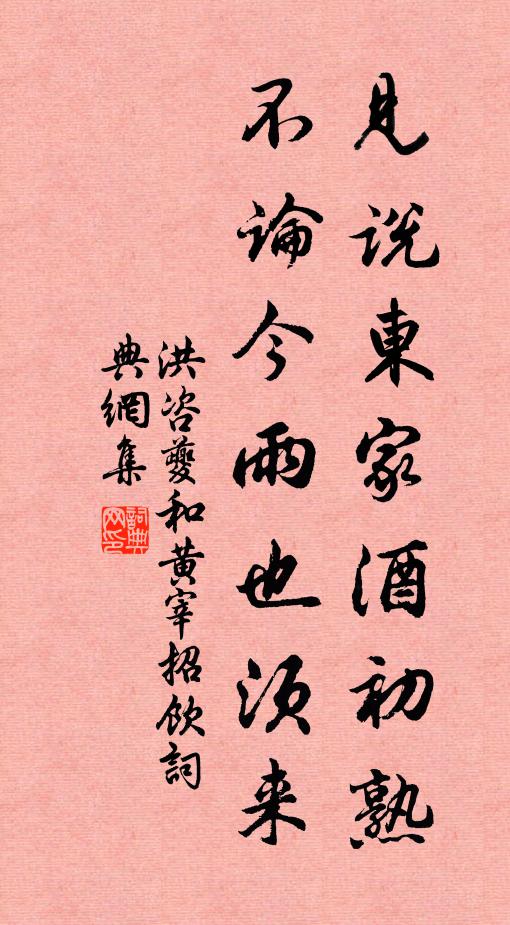 見説東家酒初熟
不論今雨也須来
洪咨夔和黄宰招飲詞
典網集
詞典网印